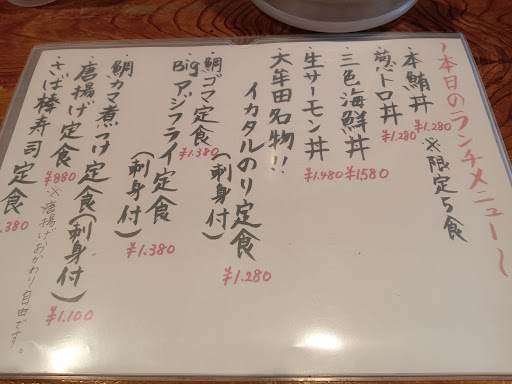 〜本日のランチメニュー〜
・本鮪丼 ※限定5食
¥1.280
・葱トロ丼
¥1.280
・三色海鮮丼
¥1580
・生サーモン丼
¥1.480
・大牟田名物!!
イカタルのり定食
¥1.280
・鯛ゴマ定食(刺身付)
¥1.380
・Bigアジフライ定食(刺身付)
¥1.380
・鯛カマ煮つけ定食(刺身付)
¥1.100
・唐揚げ定食
¥880 ※唐揚げおかわり自由です。
・さば棒寿司定食
.380